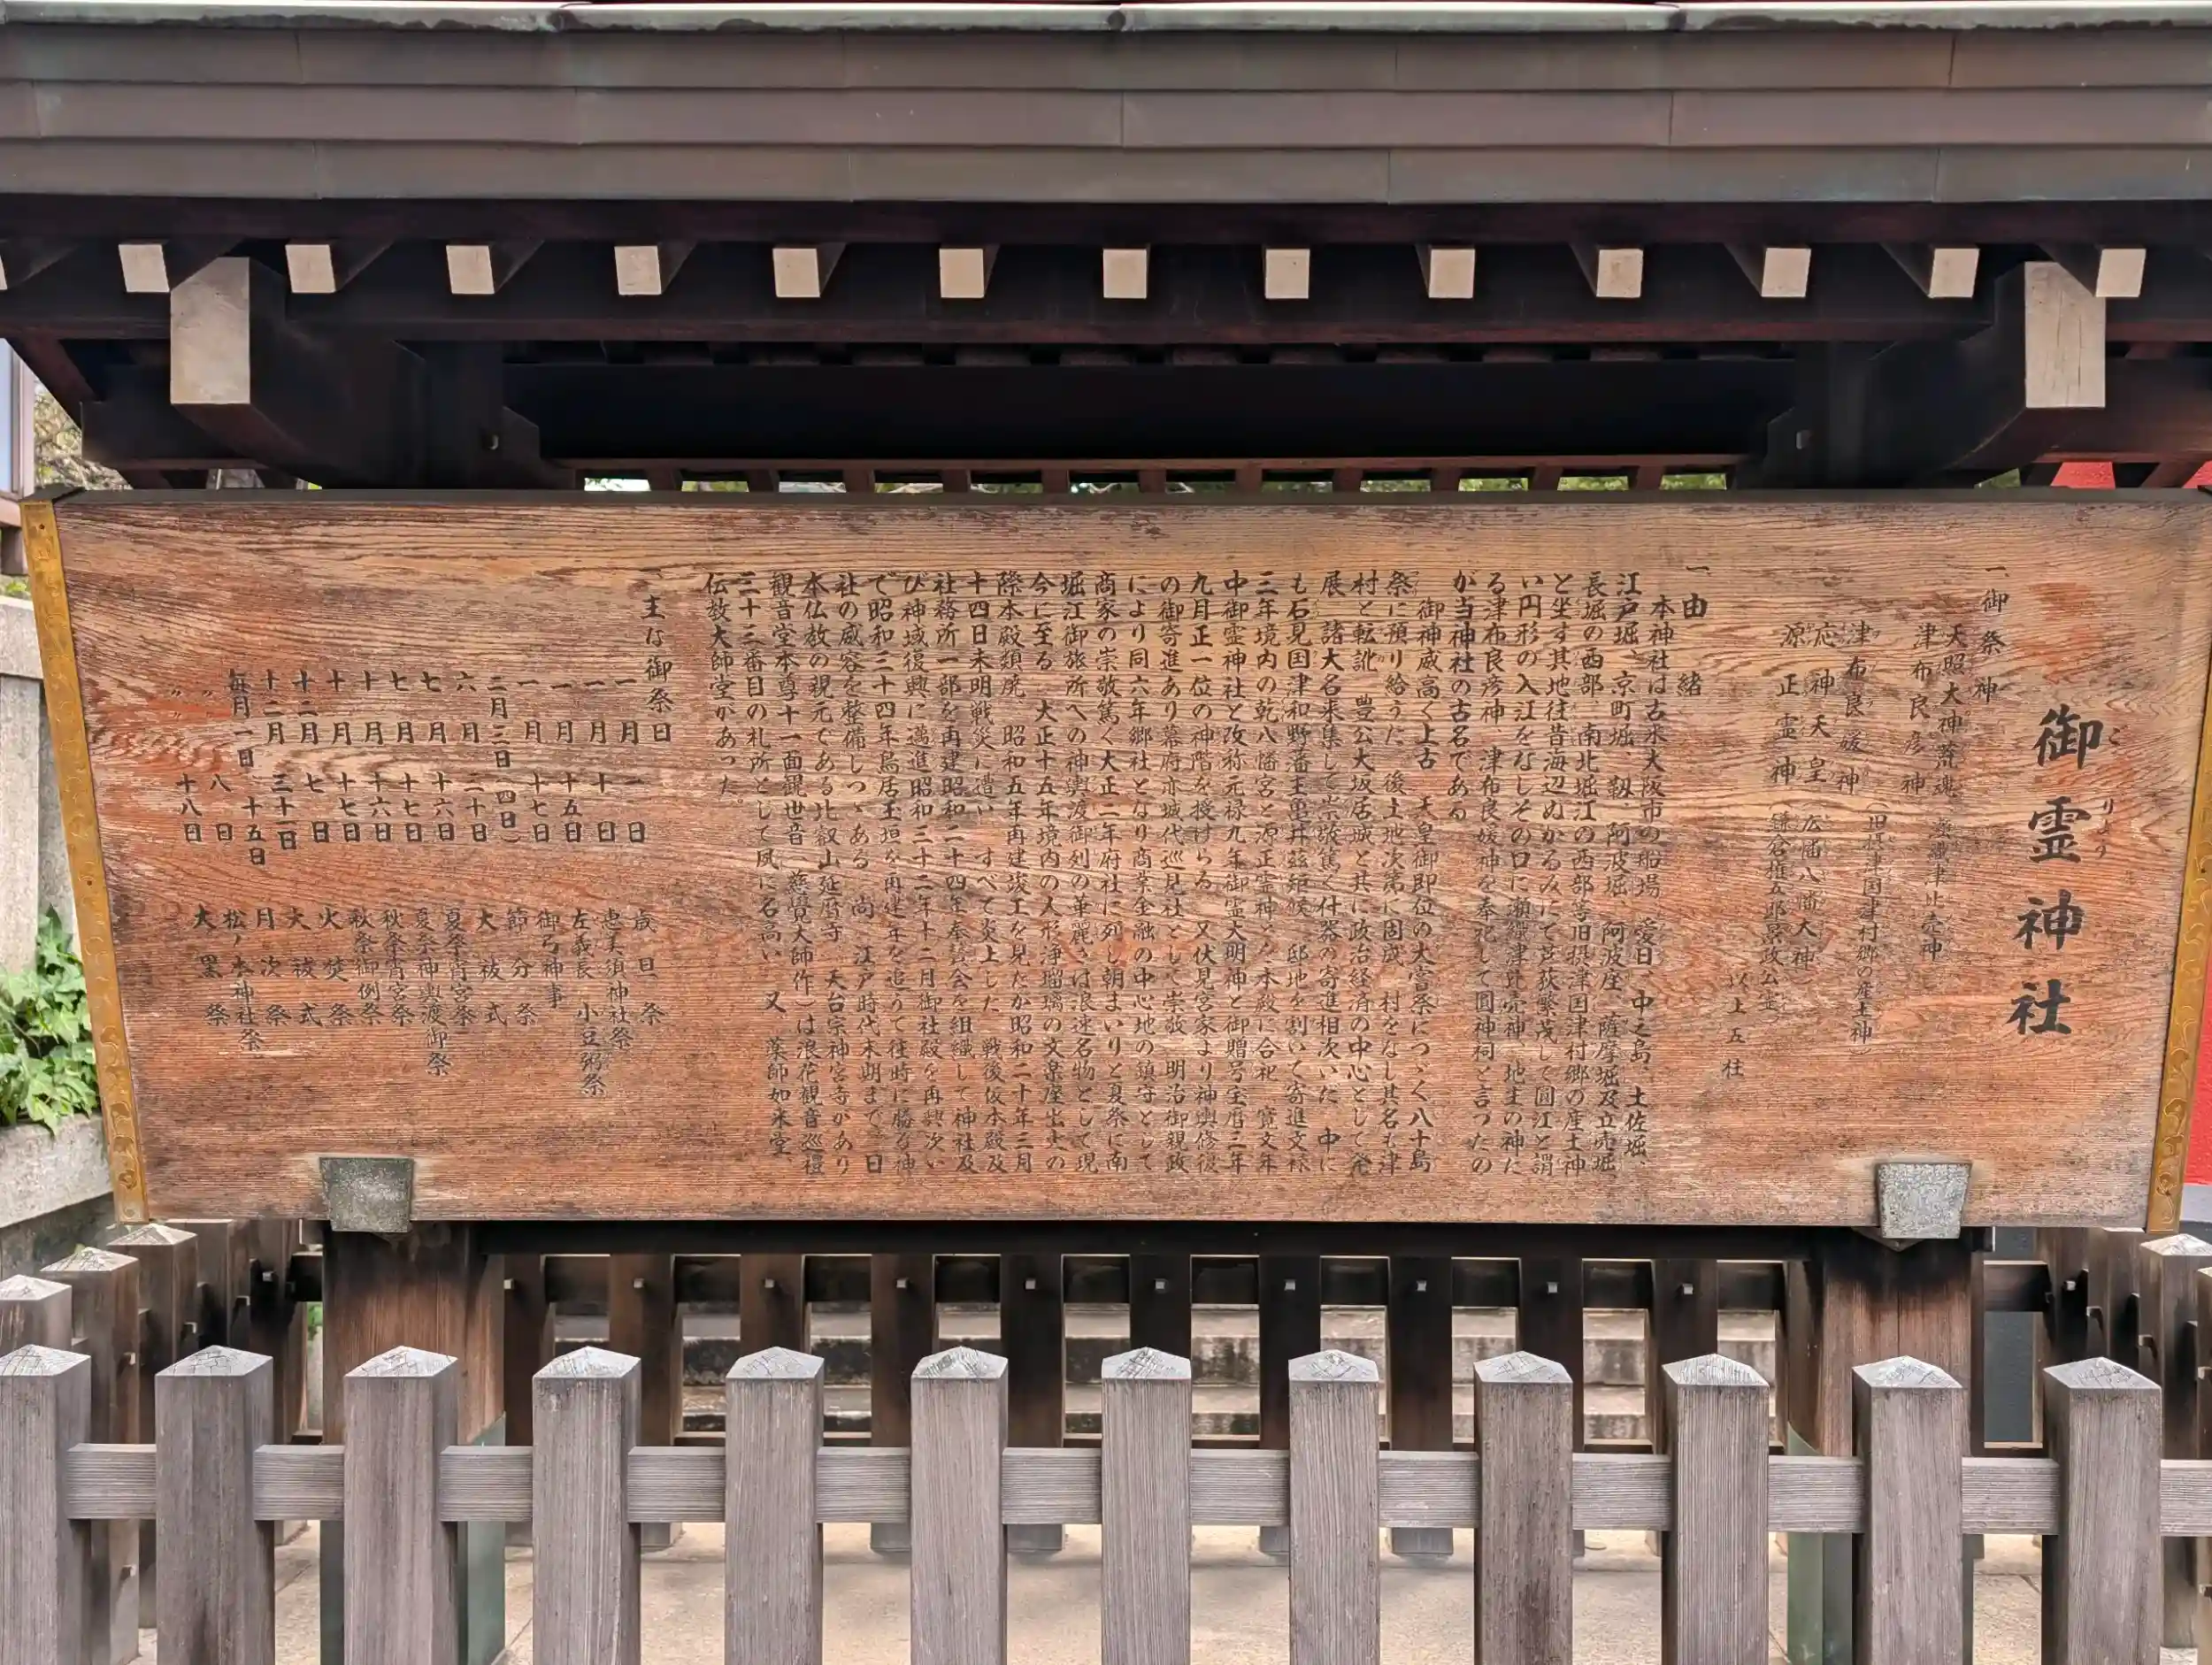 御霊神社
ごりょう
一、御祭神
天照大神荒魂 瀬織津比売神
津布良彦神
津布良媛神 (旧摂津国津村郷の産土神)
応神天皇 (広幡八幡大神)
源正霊神 (鎌倉権五郎景政公霊)
以上五柱
一、由緒
本神社は古来大阪市の船場、愛日、中之島、土佐堀、
江戸堀、京町堀、靱、阿波堀、阿波座、薩摩堀及立売堀、
長堀の西部、南北堀江の西部等旧摂津国津村郷の産土神
と坐す其地往昔海辺ぬかるみにて芦荻繁茂して圓江と謂
い円形の入江をなしその口に瀬織津比売神、地主の神た
る津布良彦神、津布良媛神を奉祀して圓神祠と言ったの
が当神社の古名である
御神威高く上古 天皇御即位の大嘗祭につゞく八十島
祭に預り給うた 後土地次第に固成 村をなし其名も津
村と転訛 豊公大坂居城と其に政治経済の中心として発
展 諸大名来集して崇敬篤く什器の寄進相次いだ 中に
も石見国津和野藩主亀井茲矩候 邸地を割いて寄進文禄
三年境内の乾八幡宮と源正霊神とを本殿に合祀 寛文年
中御霊神社と改称元禄九年御霊大明神と御贈号宝暦三年
九月正一位の神階を授けらる 又伏見宮家より神輿修復
の御寄進あり幕府亦城代巡見社として崇敬 明治御親政
により同六年郷社となり商業金融の中心地の鎮守として
商家の崇敬篤く大正二年府社に列し朝まいりと夏祭に南
堀江御旅所への神輿渡御列の華麗さは浪速名物として現
今に至る 大正十五年境内の人形浄瑠璃の文楽座出火の
際本殿類焼 昭和五年再建竣工を見たが昭和二十年三月
十四日未明戦災に遭い すべて炎上した 戦後仮本殿及
社務所一部を再建昭和二十四年奉賛会を組織して神社及
び神域復興に邁進昭和三十二年十二月御社殿を再興次い
で昭和三十四年鳥居玉垣を再建年を追うて往時に勝る神
社の威容を整備しつゝある 尚 江戸時代末期まで 日
本仏教の親元である比叡山延暦寺 天台宗神宮寺があり
観音堂本尊十一面観世音(慈覺大師作)は浪花観音巡禮
三十三番目の札所として夙に名高い 又 薬師如来堂
伝教大師堂があった。
一、主な御祭日
一月 一日 歳旦祭
一月 十日 恵美須神社祭
一月 十五日 左義長 小豆粥祭
一月 十七日 御弓神事
二月三日(四日) 節分祭
六月 二十日 大祓式
七月 十六日 夏祭宵宮祭
七月 十七日 夏祭神輿渡御祭
十月 十六日 秋祭宵宮祭
十月 十七日 秋祭御例祭
十二月 七日 火焚祭
十二月 三十一日 大祓式
毎月一日 十五日 月次祭
〃 八日 松ノ木神社祭
〃 十八日 大黒祭